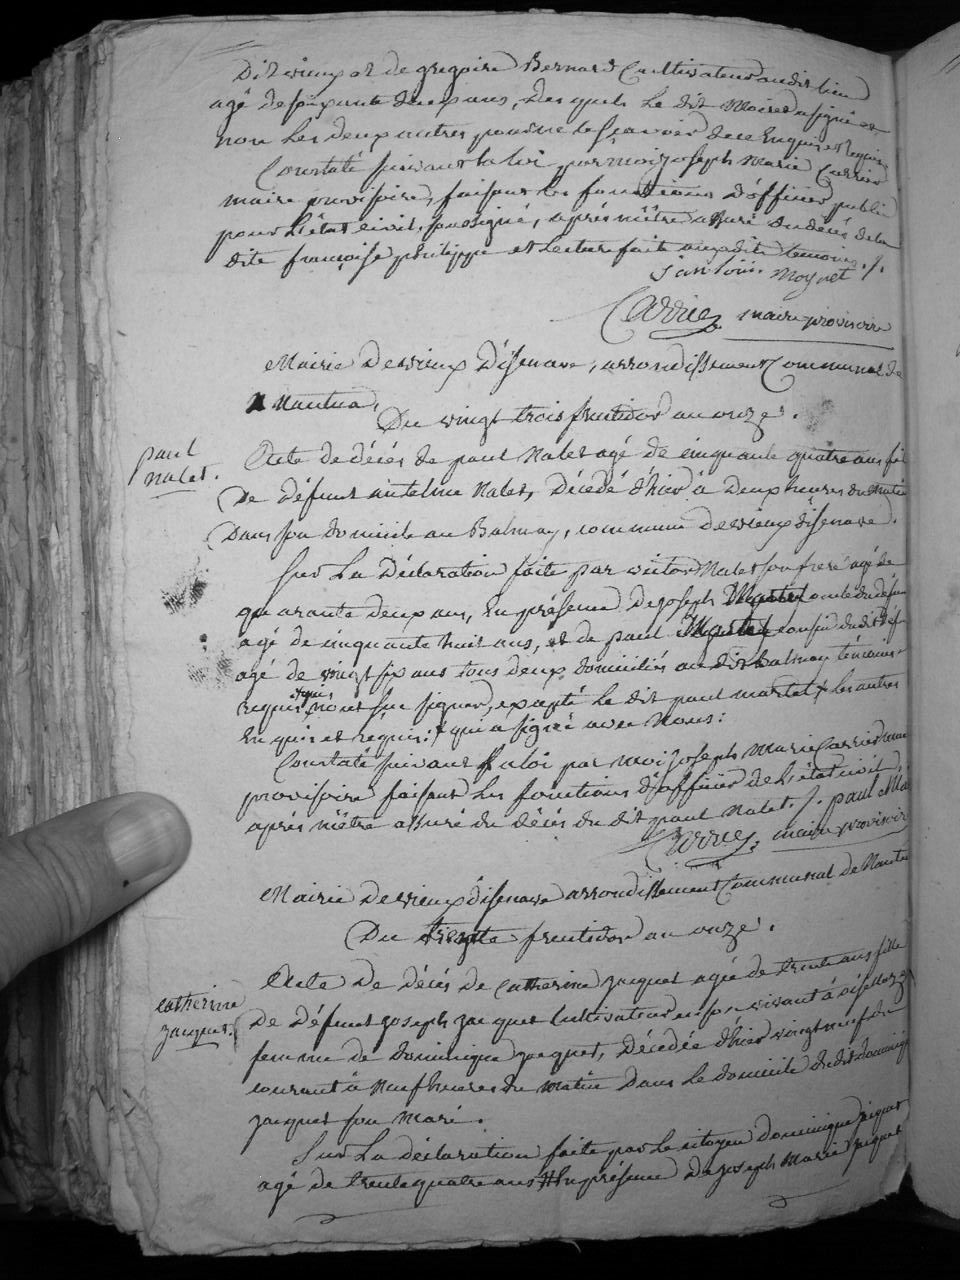 Dit vieux et de gregoire Bernard Cultivateur audit lieu
agé de soixante deux ans, desquels le dit Moinet a signé et
non les deux autres pour ne le sçavoir de ce Enquis et Requis
Constaté suivant la loi par moi joseph Marie Carrier
maire provisoire, faisant les fonctions d'officier public
pour l'état civil, soussigné, après m'être assuré du décès de la
dite françoise philippe et lecture faite auxdits temoins ./.
Moynet
Carrier maire provisoire
Mairie de vieux d'isenave, arrondissement Communal de
Nantua,
Du vingt trois fructidor an onze.
paul
nalet.
Acte de décés de paul Nalet agé de cinquante quatre ans fil
De défunt antelme Nalet, Décédé d'hier à Deux heures du matin
Dans son domicile au Balmay, commune de vieux d'isenave.
Sur la Déclaration faite par victor Nalet son frere agé de
quarante deux ans, En présence de joseph oncle du défun
agé de cinquante huit ans, et de paul cousin du dit déf
agé de vingt six ans tous deux domiciliés au dit Balmay témoins
requis, n'ont su signer, excepté le dit paul martel les autres
Enquis et requis : qui a signé avec Nous :
Constaté suivant la loi par moi joseph Marie Carrier maire
provisoire faisant les fonctions d'officier de l'état civil,
après m'être assuré du décès du dit paul Nalet ./. paul
Carrier, maire provisoir
Mairie de vieux d'isenave arrondissement Communal de Nantu
Du trente fructidor an onze.
catherine
jacquet.
Acte de décés de Catherine jacquet agée de trente ans fille
De Défunt joseph jacquet Cultivateur en son vivant à
femme de dominique jacquet, Décédée d'hier vingt neuf du
courant à Neuf heures du matin Dans le domicile du dit dominiq
jacquet son Mari.
Sur la déclaration faite par le citoyen dominique jaquet
agé de trente quatre ans En présence de joseph Marie jaquet